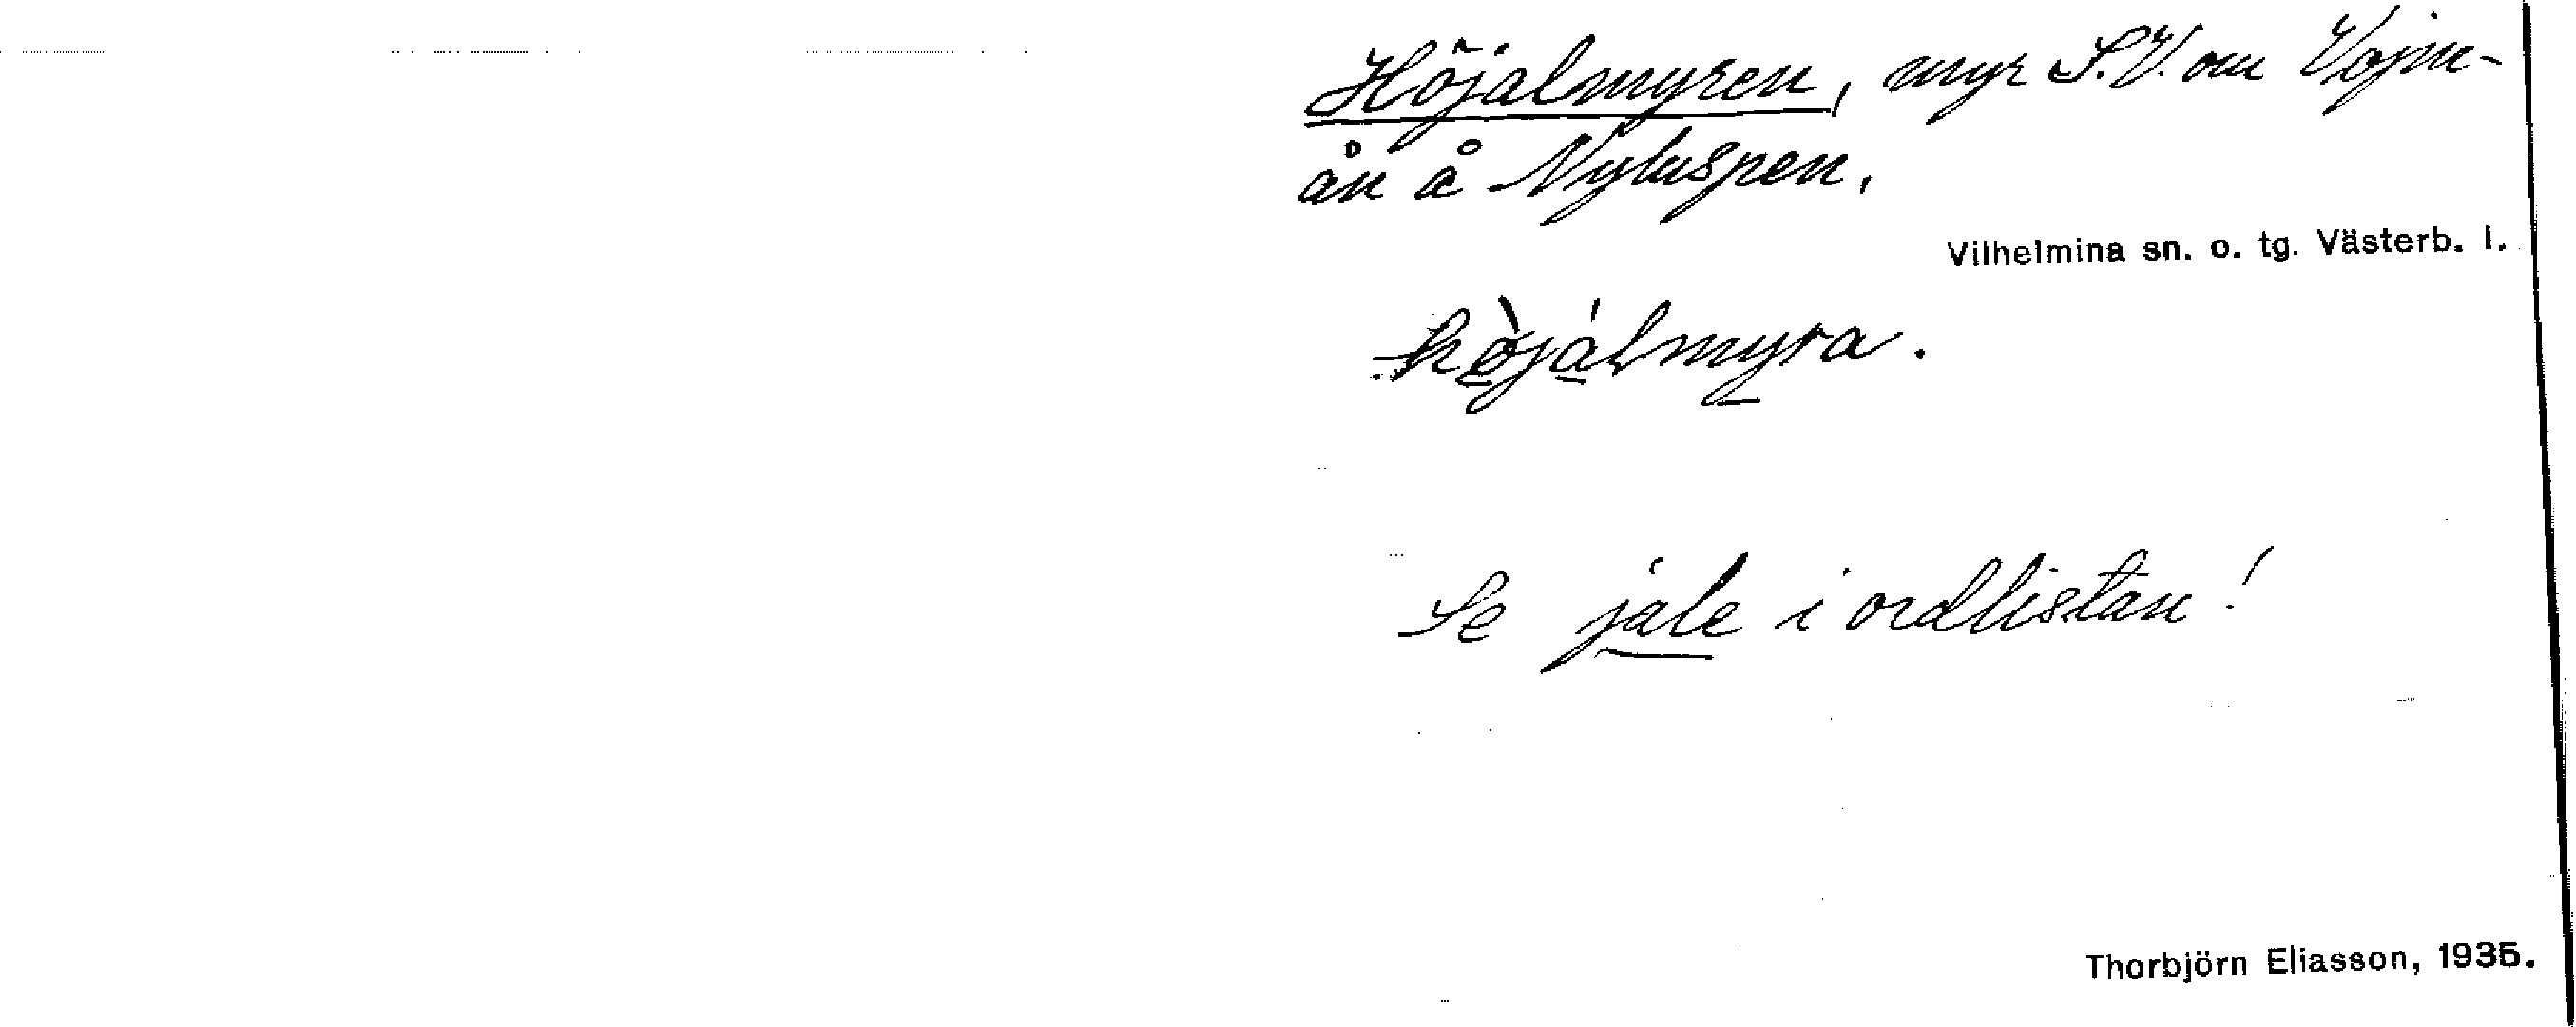 Höjalmyren, myr S.V. om Vojm-
ån å Nyluspen.
Vilhelmina sn. o. tg. Västerb. l.
höjalmyra.
Se jale i ordlistan!
Thorbjörn Eliasson, 1935.